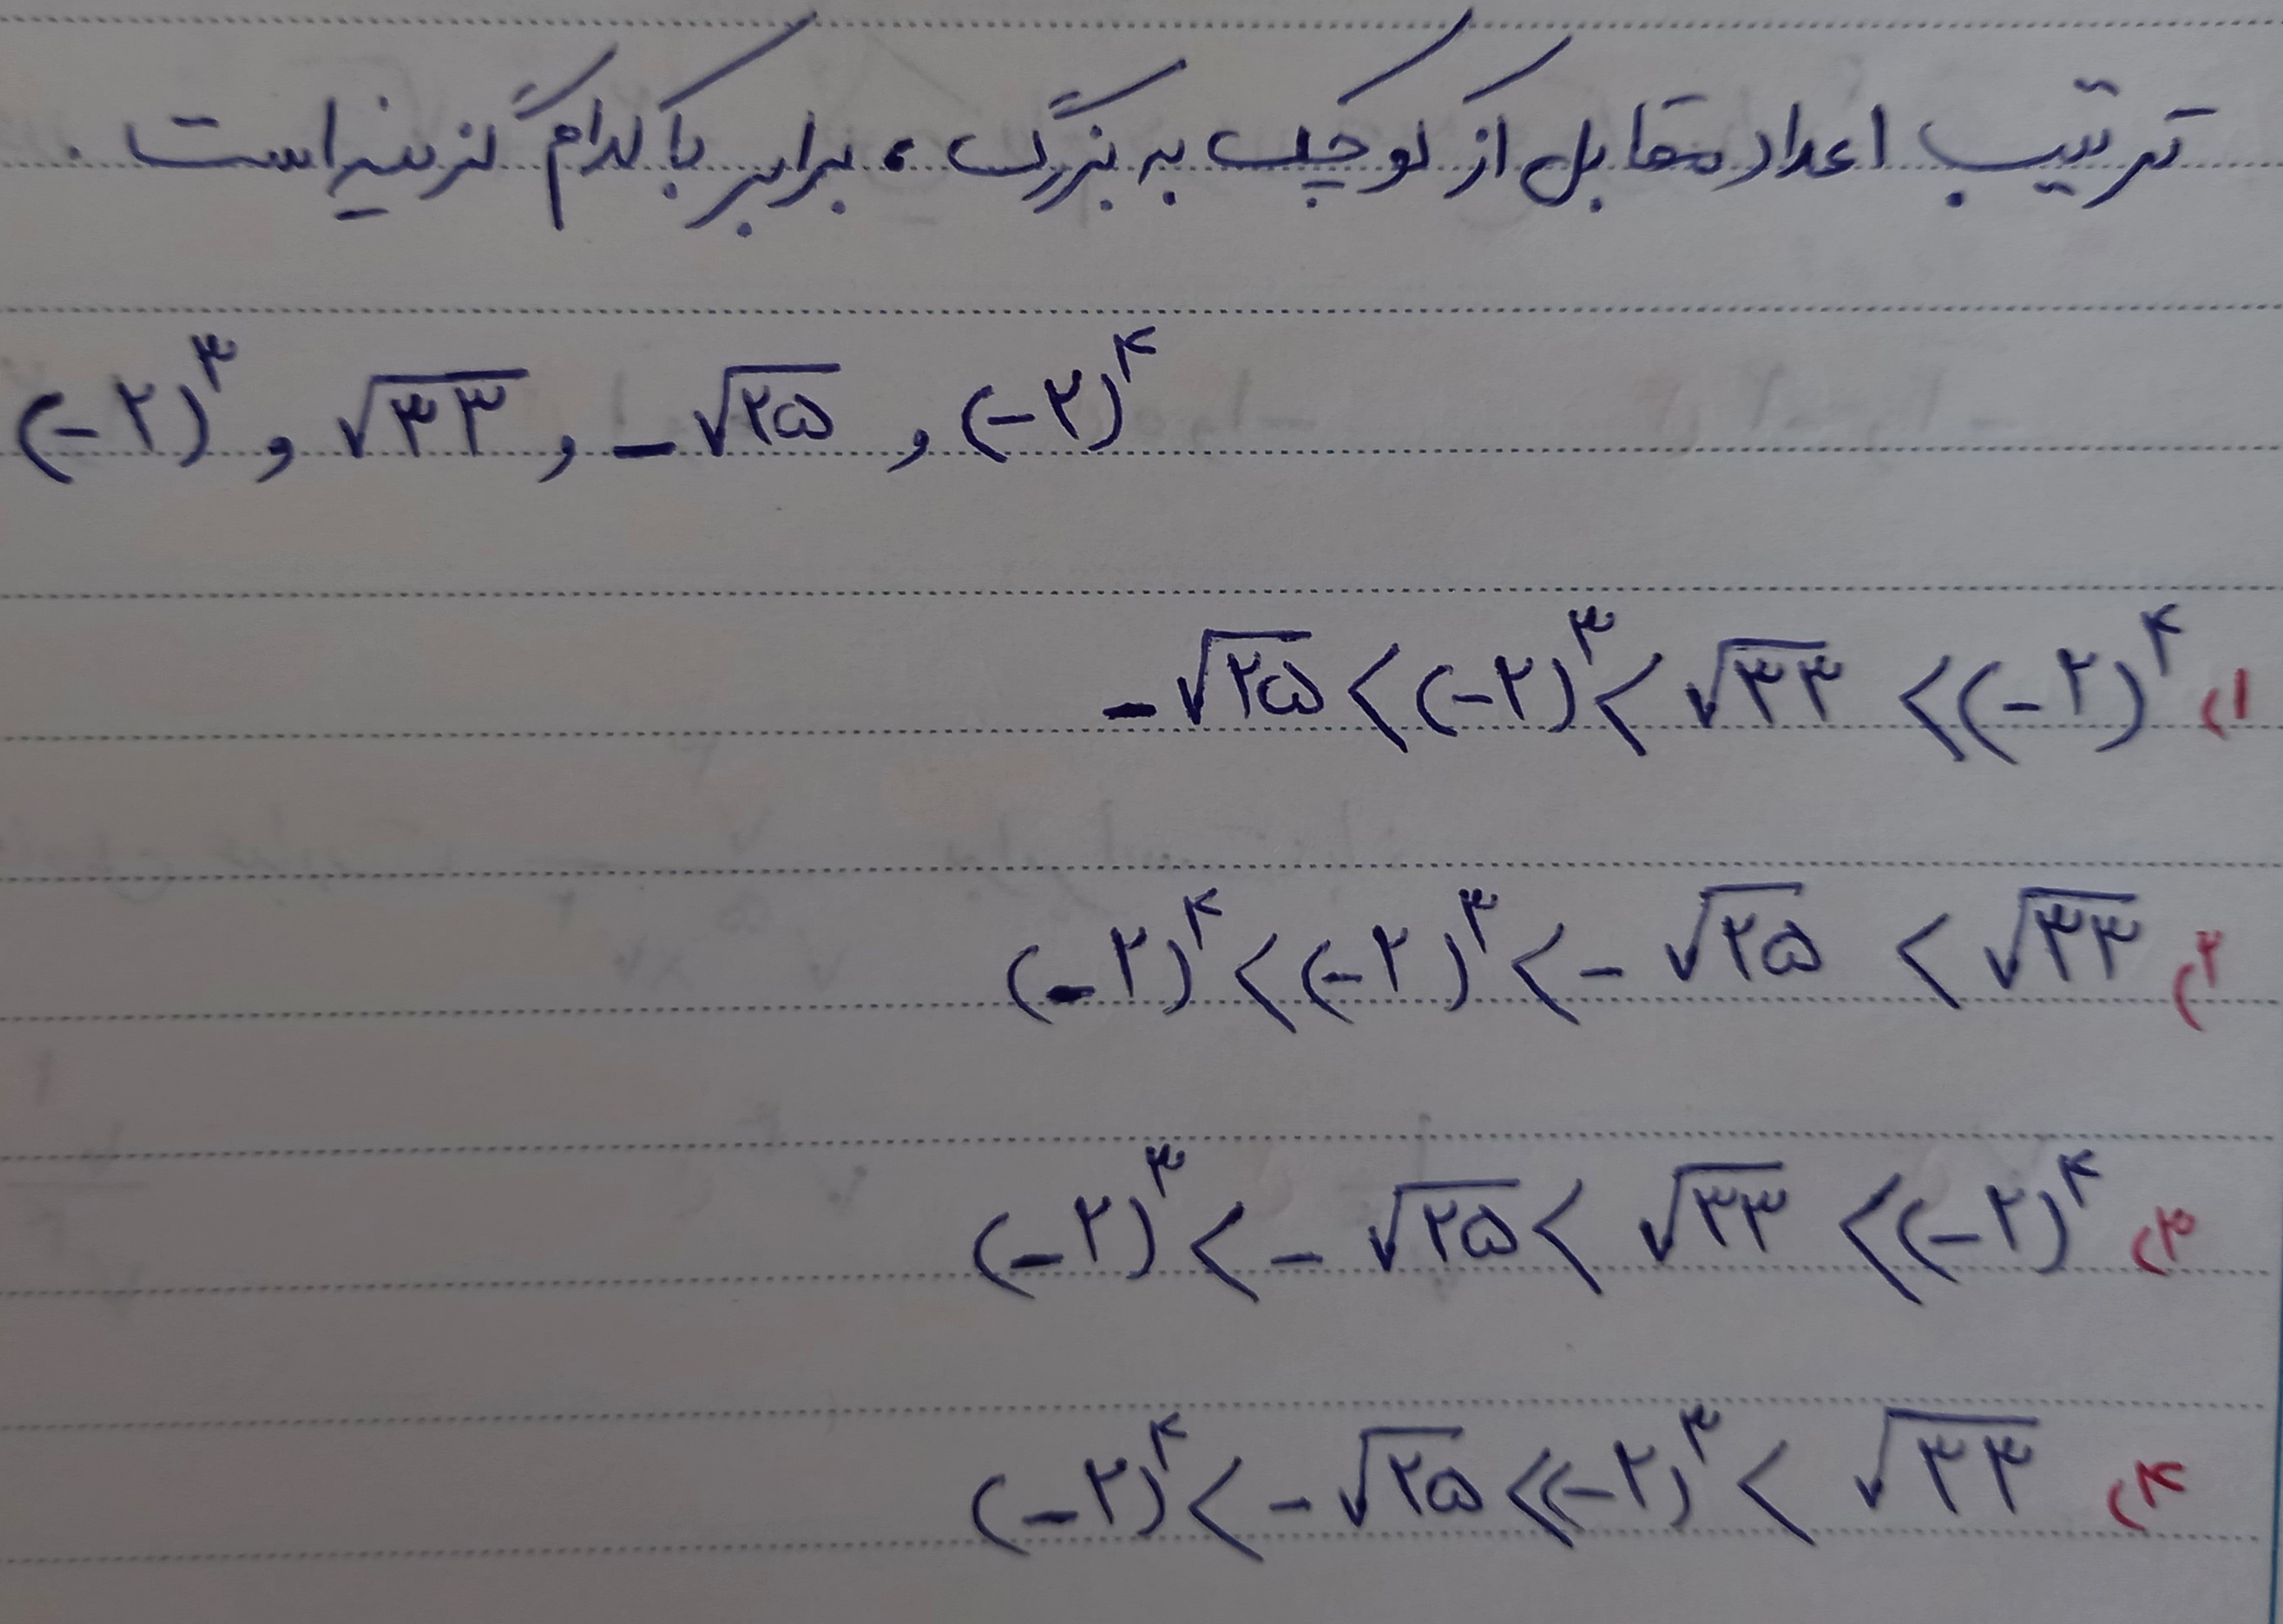 ترتیب اعداد مقابل از کوچک به بزرگ ، برابر با کدام گزینه است .
(-۲)^۳ , √۳۳ , -√۲۵ , (-۲)^۴
۱) -√۲۵ < (-۲)^۳ < √۳۳ < (-۲)^۴
۲) (-۲)^۴ < (-۲)^۳ < -√۲۵ < √۳۳
۳) (-۲)^۳ < -√۲۵ < √۳۳ < (-۲)^۴
۴) (-۲)^۴ < -√۲۵ < (-۲)^۳ < √۳۳